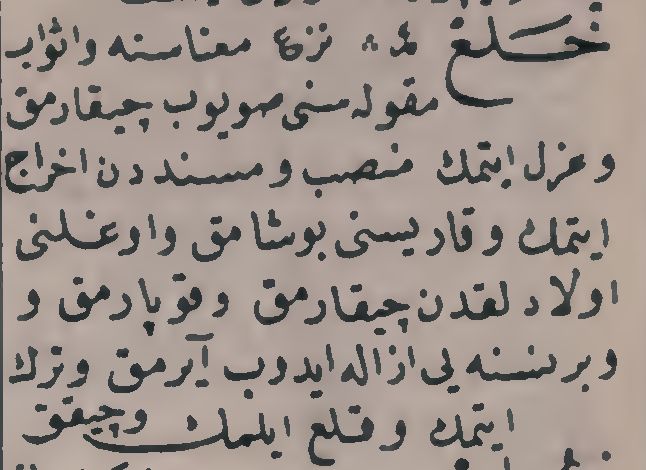 خلع نزع معناسنه و اثواب
مقوله سنى صويوب چيقارمق
و عزل ايتمك منصب و مسنددن اخراج
ايتمك و قاريسنى بوشامق و اوغلنى
اولادلقدن چيقارمق و قوپارمق و
و بر نسنه يى ازاله ايدوب آيرمق و ترك
ايتمك و قلع ايلمك و چيقق